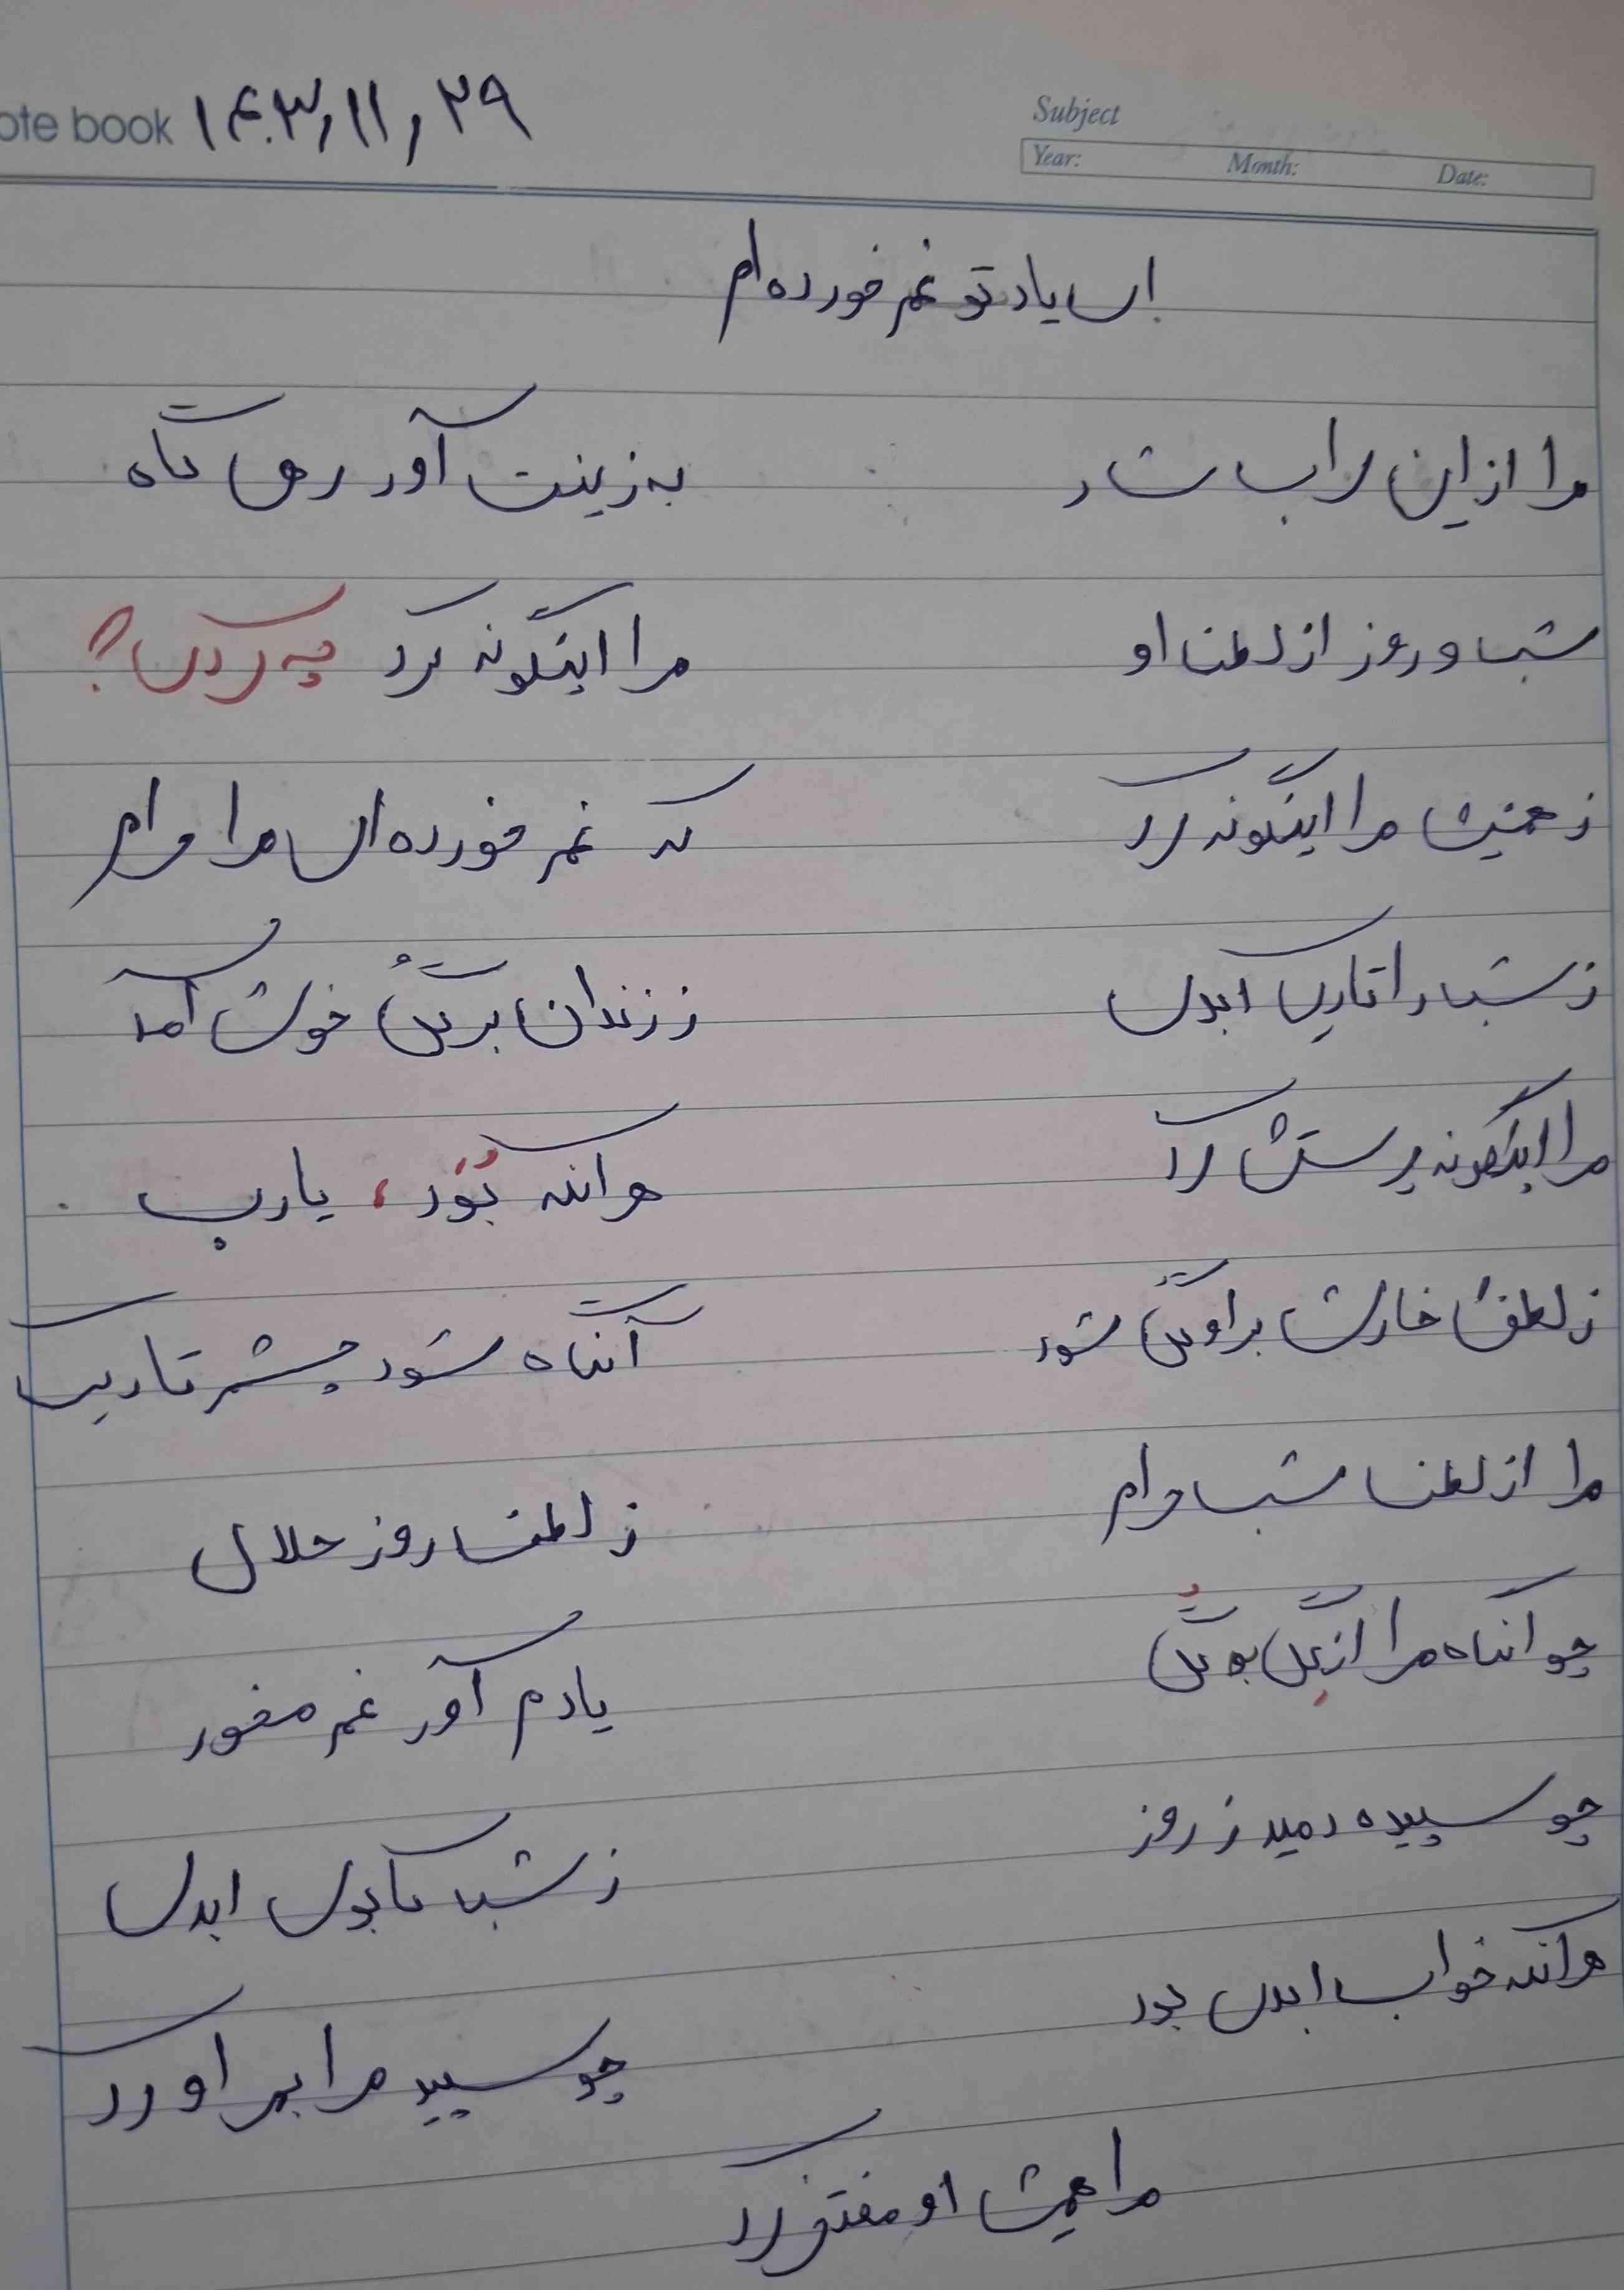 ote book ۱۴۰۳,۱۱,۲۹
Subject
Year: Month: Date:
ای یاد تو غم خورده‌ام
مرا از این راب شاد به زینت آور رهی گاه
شب و روز از لطف او مرا اینگونه کرد چه کردی؟
ز همنیت مرا اینگونه کرد که غم خورده‌ای مرا مرام
ز شب را تاریک ابدی ز زندان بر گلش خوش آمد
مرا اینگونه پرستش کرد هر آنکه بُوَد، یارب
ز لطف خارش بر او گل شود آنگاه شود چشم تاریک
مرا از لطف شب مرام ز لطف روز حلال
چو آنگاه مرا از گِل بو گُل یادم آور غم مخور
چو سپیده دمید ز روز ز شب تا بوی ابدی
هر آنکه خواب ابدی بود چو سپید مرا بهر او کرد
مرا همیت او مفتخر کرد